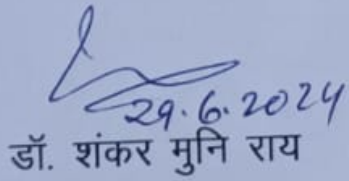 29.6.2024
डॉ. शंकर मुनि राय